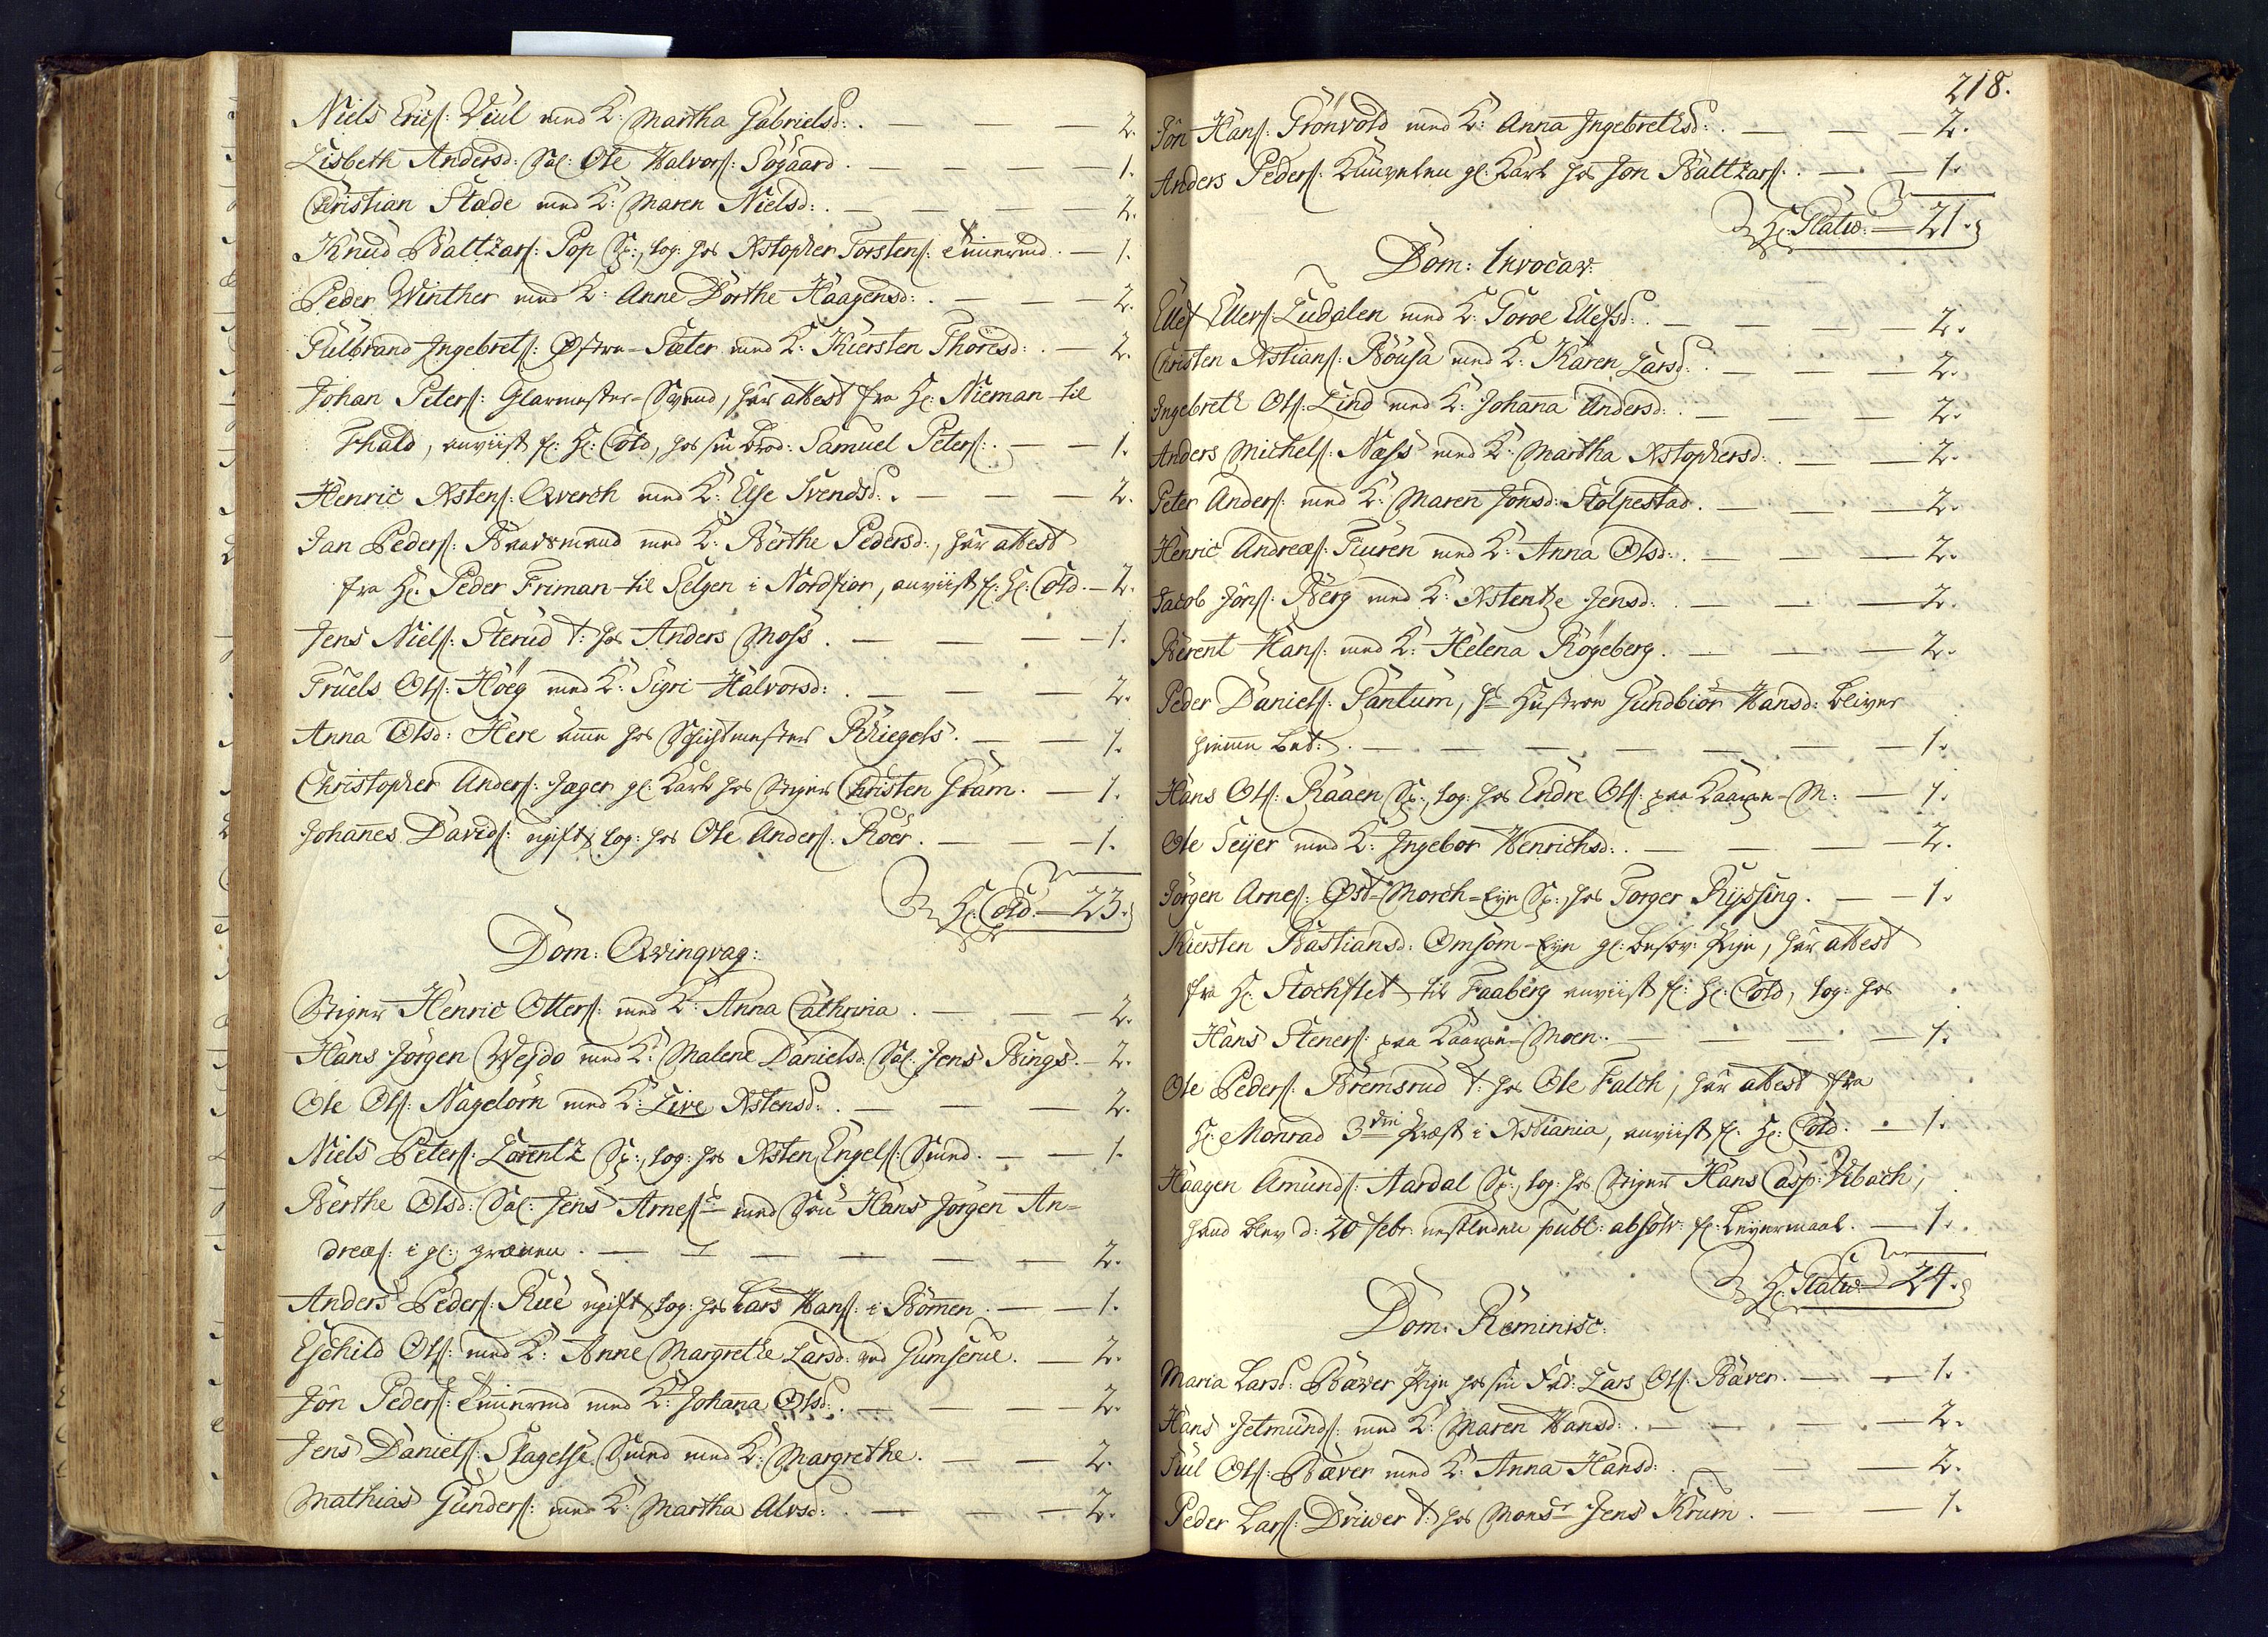 Niels Erics: Viul med K: Martha Gabrielsd: . — — — 2.
Lisbeth Andersd: Sal: Ole Halvors: Søgaard. — — — 1.
Christian Stade med K: Maren Nielsd: . — — — 2.
Knud Baltzars: Pop Sp:, log: hos Xstopher Torstens: — 1.
Peder Winther med K: Anne Dorthe Haagensd: . — — 2.
Gulbrand Ingebrets: Østre-Sæter med K: Kiersten Thoresd: . — 2.
Johan Peters: Glarmester-Svend, har attest fra Hr: Nieman til
Fhald, anviist fr: Hr: Cold, hos sin Brod: Samuel Peters: . — — 1.
Henric Xstens: Qverch med K: Else Svendsd: . — — — 2.
Jan Peders: med K: Berthe Pedersd:, har attest
fra Hr: Peder Friman til Selgen i Nordfior, anviist fr: Hr: Cold. — 2.
Jens Niels: Sterud t: hos Anders Moss. — — — 1.
Truels Ols: Høeg med K: Sigri Halvorsd: . — — — 2.
Anna Olsd: Here Amme hos Schichtmester Kriegels. — — 1.
Christopher Anders: Jæger gl: Karl hos Stiger Christen Gram. — 1.
Johanes Davids: ugift log: hos Ole Anders: Røer. — — 1.
Hr: Cold. — 23.
Dom: Qvinqvag:
Stiger Henric Otters: med K: Anna Cathrina. — — — 2.
Hans Jørgen Wejdo med K: Malene Danielsd: Sal: Jens Bings. — 2.
Ole Ols: Nagelørn med K: Live Xstensd: . — — — 2.
Niels Peters: Lorentz Sp:, log: hos Xsten Engels: Smed. — — 1.
Berthe Olsd: Sal: Jens Arnes: med Søn Hans Jørgen An=
dreæs: i gl: — — — 2.
Anders Peders: Rue ugift log: hos Lars Hans: i Bømen. — — 1.
Eschild Ols: med K: Anne Margrethe Larsd: ved Gumserue. — 2.
Jon Peders: med K: Johana Olsd: . — — — 2.
Jens Daniels: Slagelse Smed med K: Margrethe. — — 2.
Mathias Gunders: med K: Martha Alvsd: . — — — 2.
218.
Jon Hans: Grønvold med K: Anna Ingebretsd: . — — 2.
Anders Peders: gl: Karl hos Jon Baltzars: . — — 1.
Hr: Platou — 21.
Dom: Invocav:
Ellef Ellefs: Ludalen med K: Toroe Ellefsd: . — — — 2.
Christen Xstians: Bøusa med K: Karen Larsd: . — — — 2.
Ingebreth Ols: Lind med K: Johana Andersd: . — — — 2.
Anders Michels: Næss med K: Martha Xstophersd: . — — 2.
Peter Anders: med K: Maren Jonsd: Stolpestad. — — — 2.
Henric Andreæs: Furen med K: Anna Olsd: . — — — 2.
Jacob Jons: Berg med K: Xstentze Jensd: . — — — 2.
Berent Hans: med K: Helena Røgeberg. — — — 2.
Peder Daniels: Pantum, hs Hustroe Gundbiør Hansd: bliver
hieme bet: . — — — — 1.
Hans Ols: Raaen Sp:, log: hos Endre Ols: paa M: — 1.
Ole Seijer med K: Ingebor Henrichsd: . — — — 2.
Jørgen Arnes: Øst-Morch-Eye Sp:, hos Torger Ryssing. — — 1.
Kiersten Bastiansd: Omsom-Eye gl: besov: Pige, har attest
fra Hr: Stochflet til Faaberg anviist fr: Hr: Cold, log: hos
Hans Steners: paa Moen. — — — 1.
Ole Peders: Bremsrud t: hos Ole Falch, har attest fra
Hr: Monrad 3die Præst i Xstiania, anviist fr: Hr: Cold. — 1.
Haagen Amunds: Aardal Sp:, log: hos Stiger Hans Casp: Vibach,
hand blev d: 20 Febr: nestleden publ: absolv: fr: Leyermaal. — 1.
Hr: Platou — 24.
Dom: Reminisc:
Maria Larsd: Bæver Pige hos sin Fad: Lars Ols: Bæver. — 1.
Hans Jetmunds: med K: Maren Hansd: . — — — 2.
Juul Ols: Bæver med K: Anna Hansd: . — — — 2.
Peder Lars: Driwer t: hos Monsr Jens Krum. — — 1.